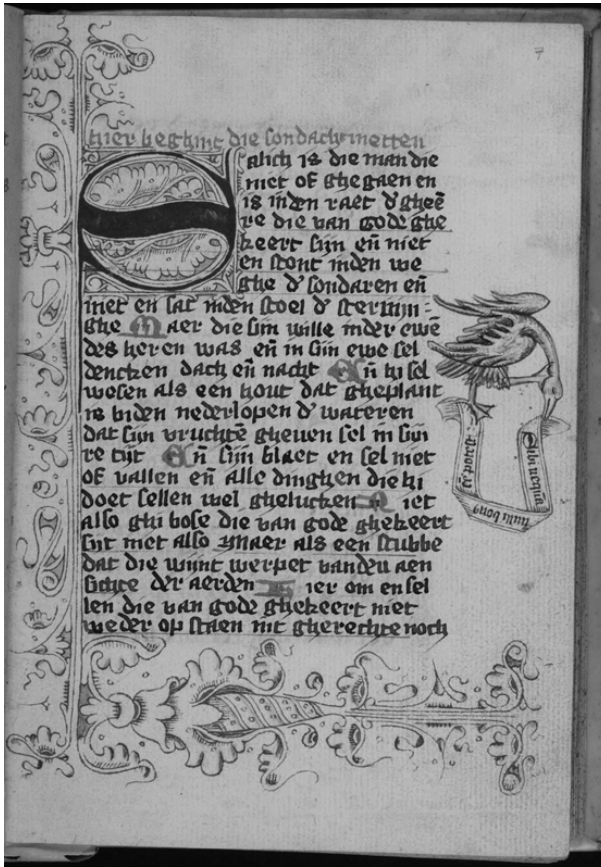 7
hier beghint die sondachsmetten
Salich is die man die
niet of ghegaen en
is inden raet d' gheē
re die van gode ghe
keert sijn eñ niet
en stont inden we
ghe d' sondaren eñ
niet en sat inden stoel d'
ghe Maer die sijn wille inder ewē
des heren was eñ in sijn ewe sel
dencken dach eñ nacht Eñ hi sel
wesen als een hout dat gheplant
is biden nederlopen d' wateren
dat sijn vruchtē gheven sel in sijn
re tijt Eñ sijn blaet en sel niet
of vallen eñ alle dinghen die hi
doet sellen wel ghelucken Niet
also ghi bose die van gode ghekeert
sijt niet also Maer als een stubbe
dat die wijnt werpet vanden aen
sichte der aerden Hier om en sel
len die van gode ghekeert niet
weder op staen int gherechte noch
nulli bonus